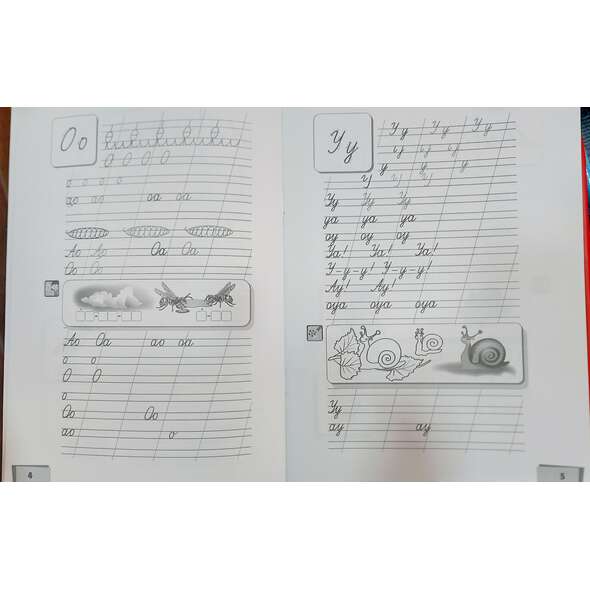 Оо
О О О О
о о о о
ао ао оа оа
Ао Ао Оа Оа
Оо Оо
Ао Оа ао оа
о о
О О
о
Оо Оо
ао о
4
Уу
Уу Уу Уу
у у у
Уу Уу Уу
уа уа уа
оу оу оу
Уа! Уа! Уа!
У-у-у! У-у-у!
Ау! Ау!
оуа оуа оуа
Уу
ау ау
5